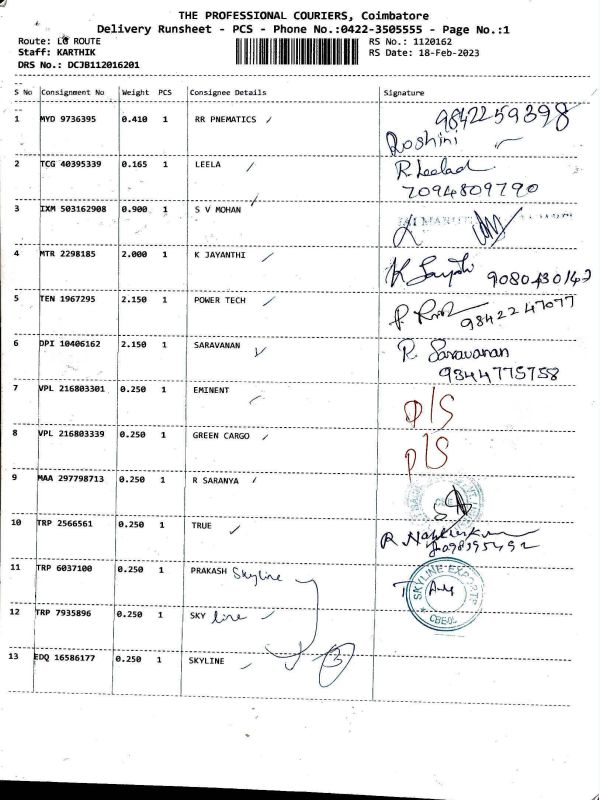 THE PROFESSIONAL COURIERS, Coimbatore
Delivery Runsheet - PCS - Phone No.:0422-3505555 - Page No.:1
Route: LG ROUTE
Staff: KARTHIK
DRS No.: DCJB112016201
RS No.: 1120162
RS Date: 18-Feb-2023
S No Consignment No Weight PCS Consignee Details Signature
1 MYD 9736395 0.410 1 RR PNEMATICS 9842259398
Roshini
2 TCG 40395339 0.165 1 LEELA R. Leelad
7094809790
3 IXM 503162908 0.900 1 S V MOHAN
4 MTR 2298185 2.000 1 K JAYANTHI K 9080430142
5 TEN 1967295 2.150 1 POWER TECH P. 9842247077
6 DPI 10406162 2.150 1 SARAVANAN R. Saravanan
9844775758
7 VPL 216803301 0.250 1 EMINENT D/S
8 VPL 216803339 0.250 1 GREEN CARGO D/S
9 MAA 297798713 0.250 1 R SARANYA
10 TRP 2566561 0.250 1 TRUE R.
11 TRP 6037100 0.250 1 PRAKASH Skyline SKYLINE EXPORTS
CBE
12 TRP 7935896 0.250 1 SKY line
13 EDQ 16586177 0.250 1 SKYLINE 3